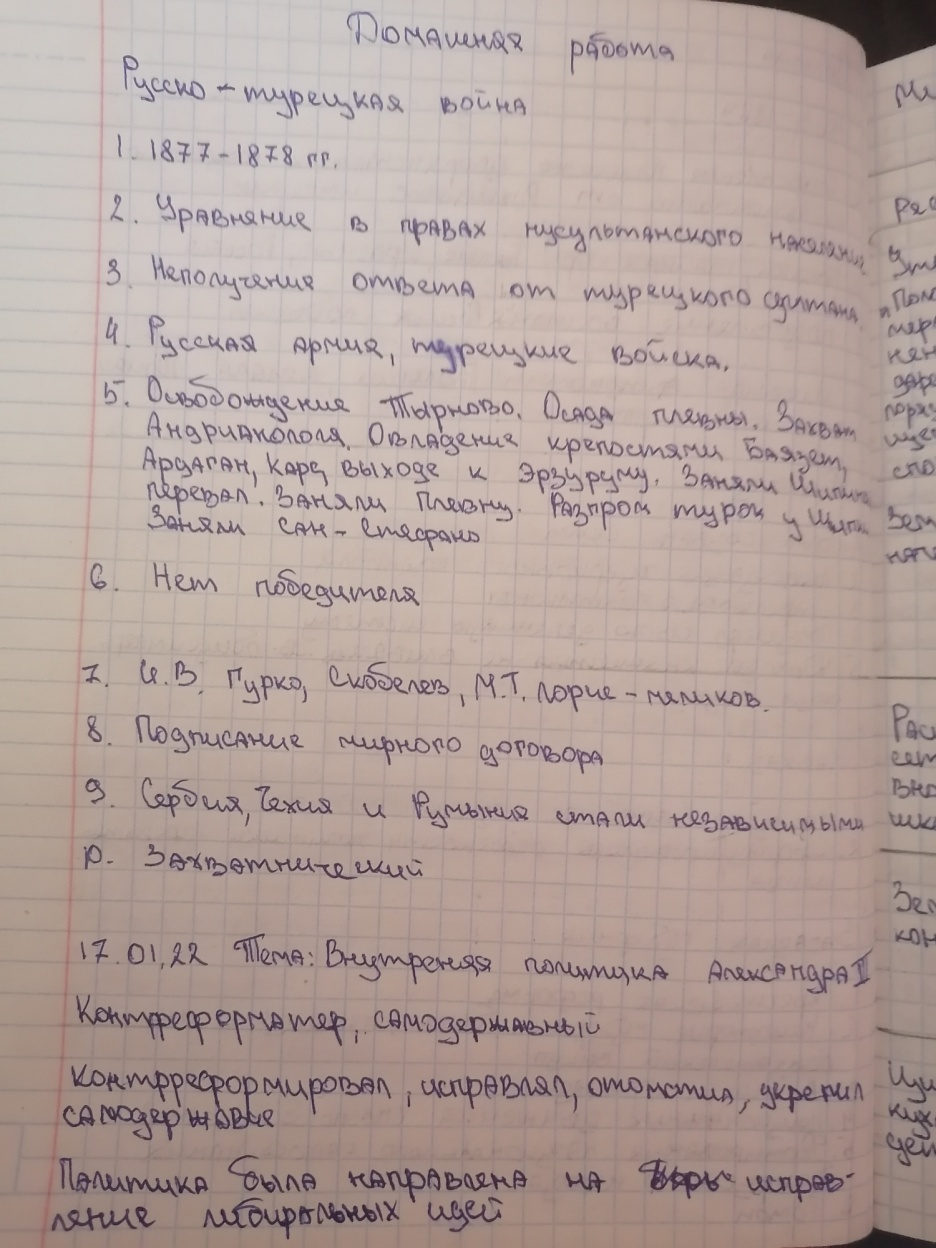 Домашняя работа
Русско-турецкая война
1. 1877-1878 гг.
2. Уравняние в правах мусультанского
3. Неполучение ответа от турецкого султана
4. Русская армия, турецкие войска.
5. Освобождения Тырново. Осада плевны. Захват
Андрианополя. Овладение крепостями Баязет,
Ардаган, Карс, выходе к Эрзуруму. Заняли
перевал. Заняли Плевну. Разгром турок у
Заняли Сан-Стефано
6. Нет победителя
7. И.В. Гурко, Скобелев, М.Т. Лорис-меликов.
8. Подписание мирного договора
9. Сербия, Чехия и Румыния стали независимыми
10. Захватнический
17.01.22 Тема: Внутреняя политика Александра II
Контрреформатер, самодержавный
Контрреформировал, исправлял, отомстил, укрепил
самодержовие
Палитика была направлена на исправ-
ление либиральных идей